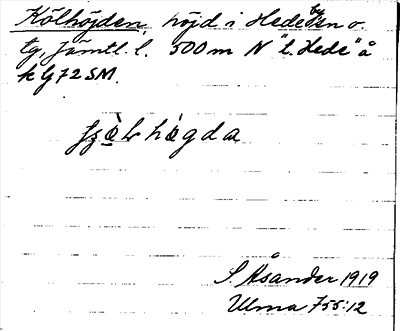 Kölhöjden, höjd i Hede by o.
tg, Jämtl. l. 500 m N "t. Hede" å
k G72SM.
hògda
S. Åsander 1919
Ulma 755:12